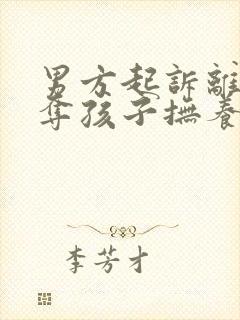 男方起訴離
奪孩子撫養
李芳才